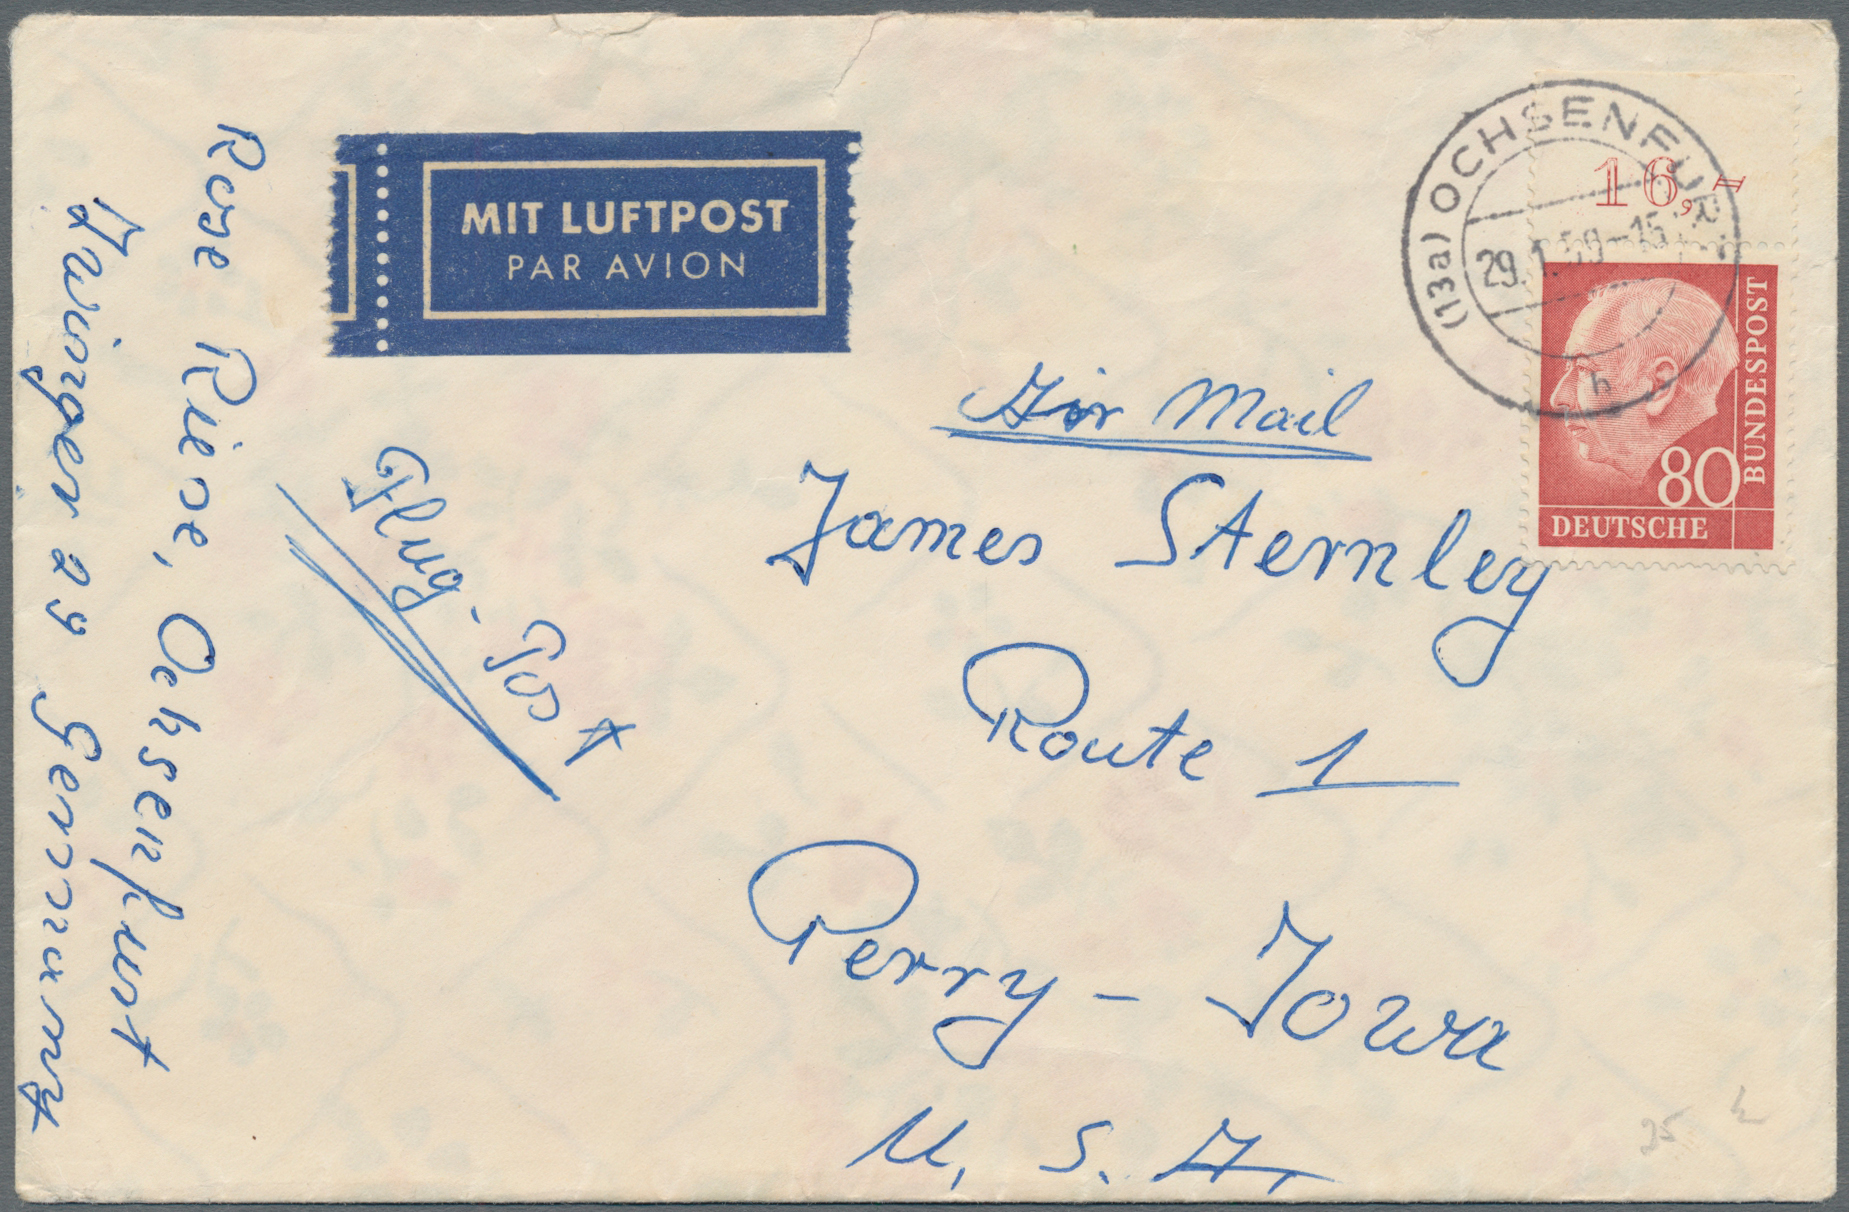 MIT LUFTPOST
PAR AVION
(13a) OCHSENFURT
29. 59-15
h
16,-
80
BUNDESPOST
DEUTSCHE
Air Mail
Flug-Post
James Sternley
Route 1
Perry - Iowa
U. S. A.
Rose Riese, Ochsenfurt
Zwinger 29 Germany
25